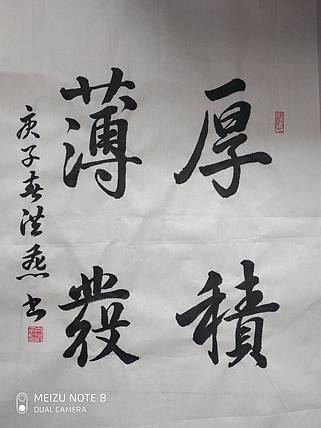 厚積
薄發
庚子春洪燕书
MEIZU NOTE 8
DUAL CAMERA